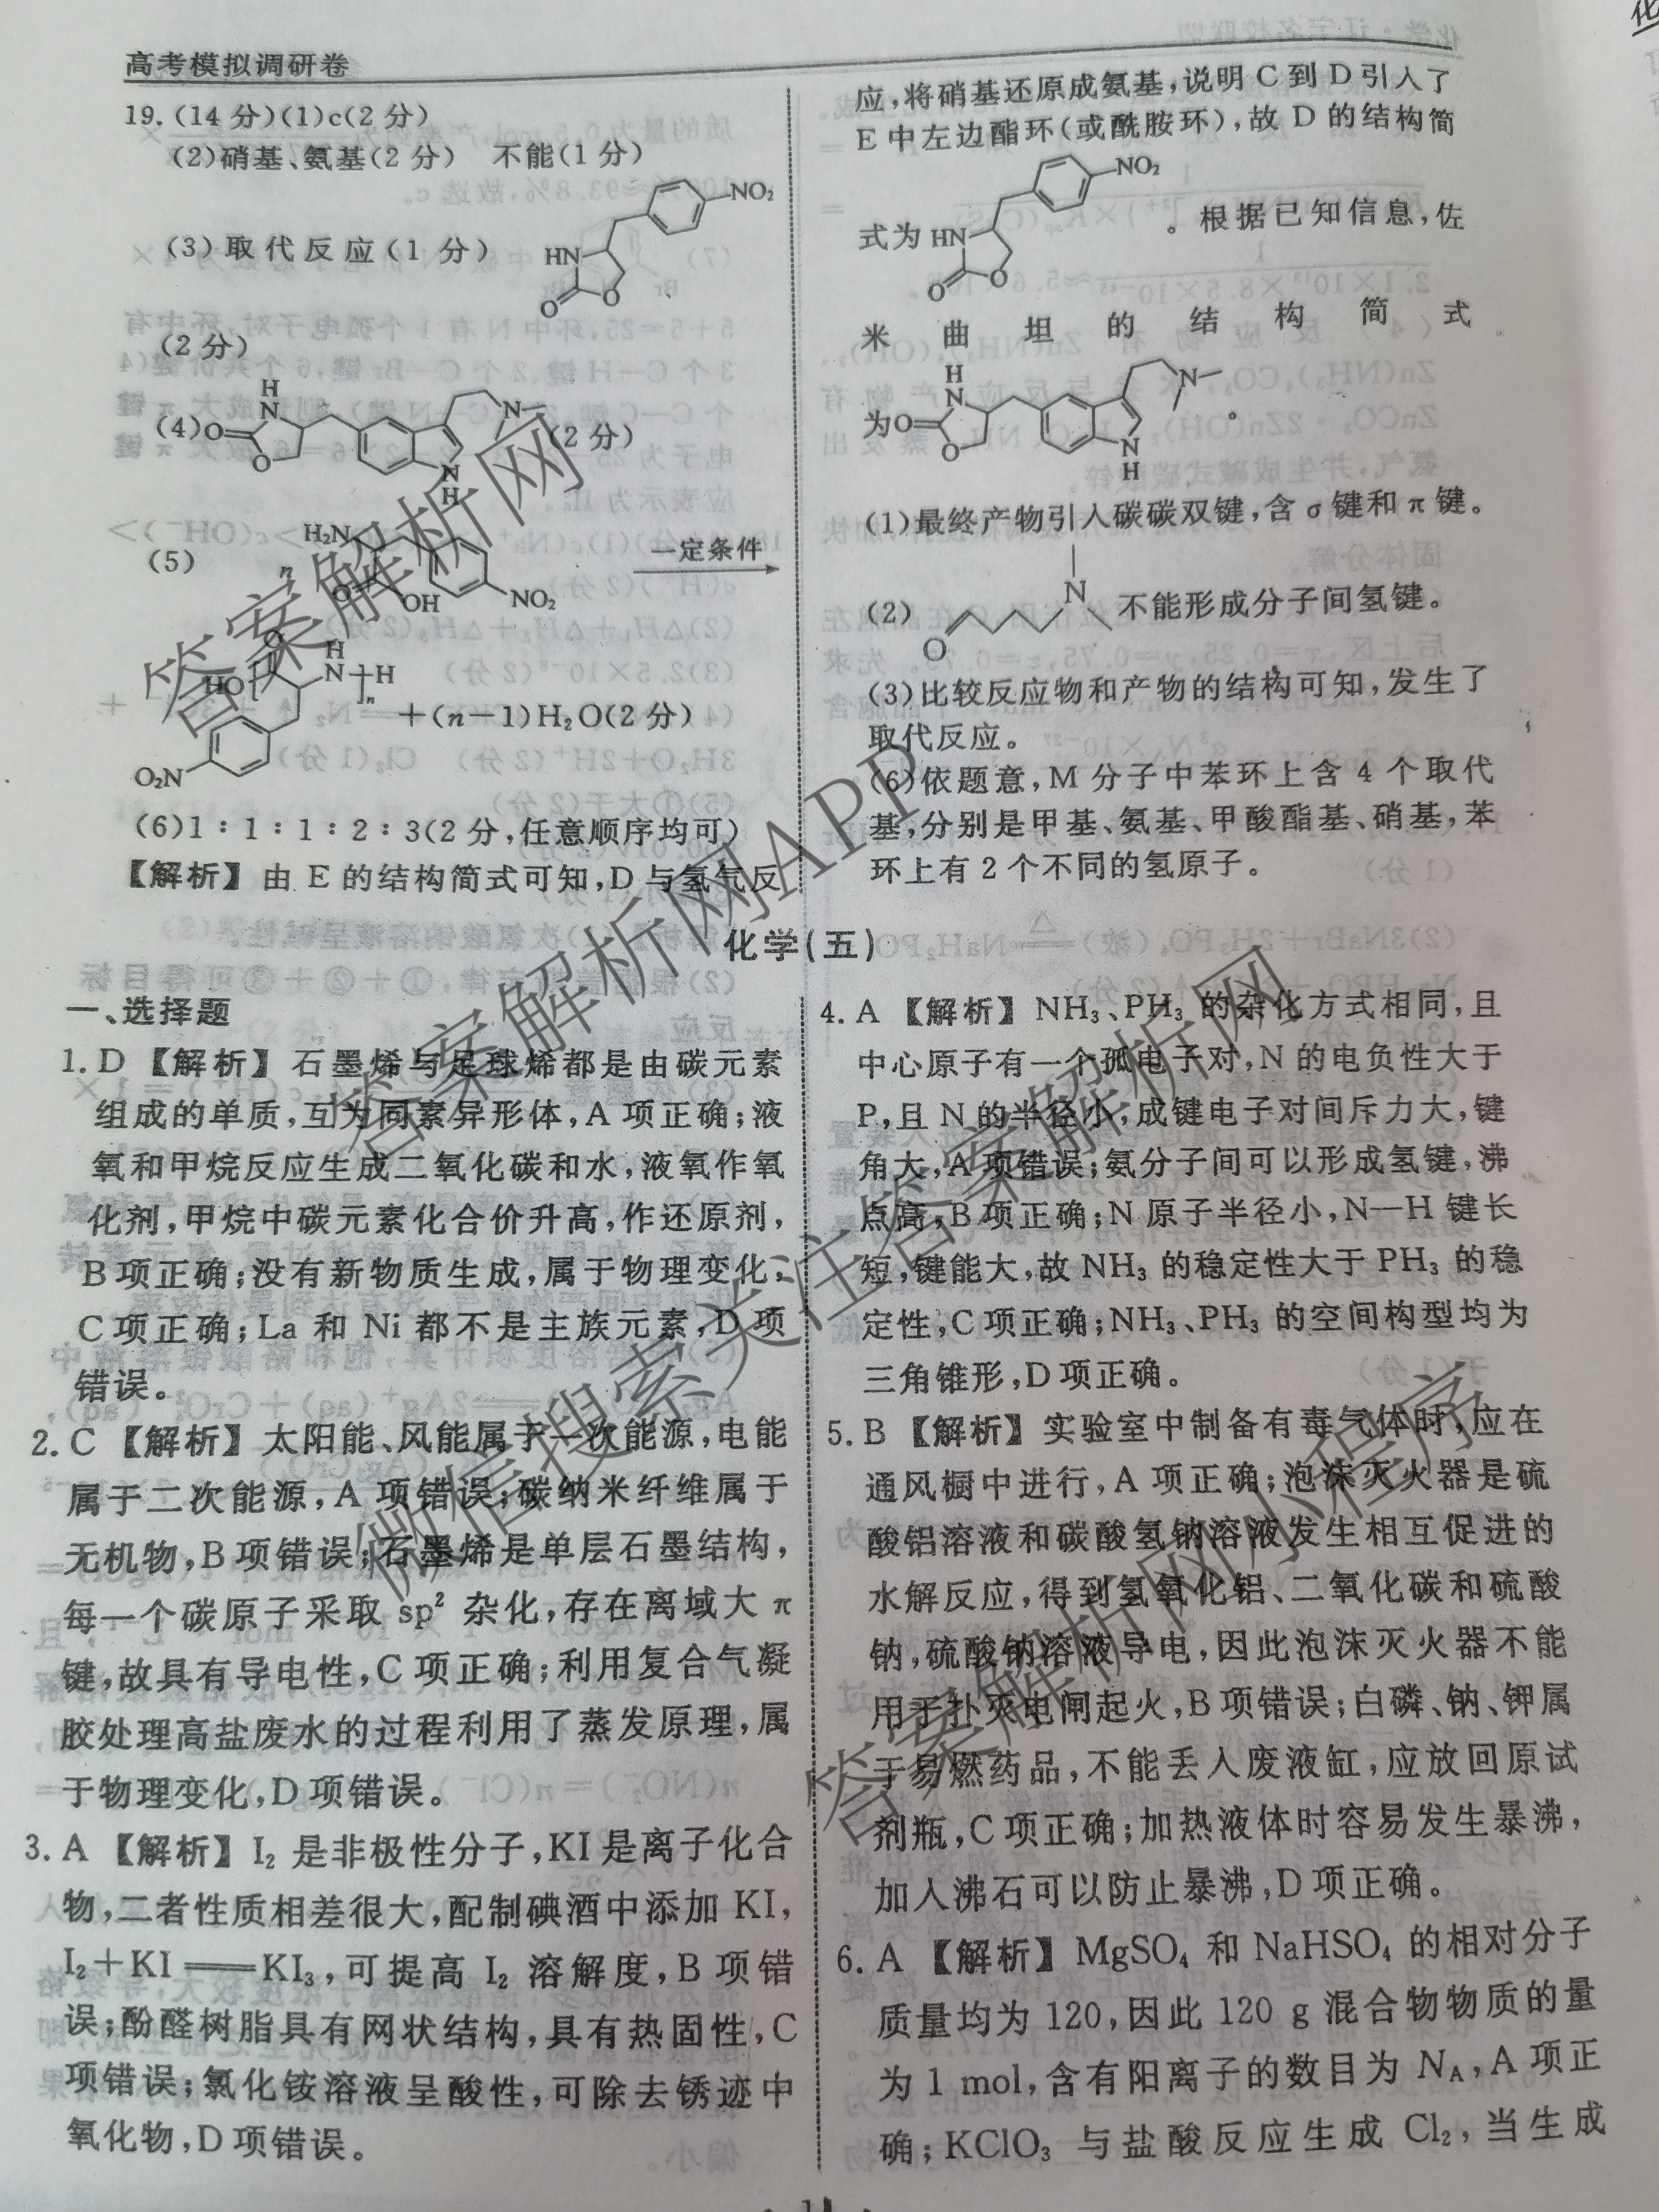 高考模拟调研卷
19.(14分)(1)c(2分)
(2)硝基、氨基(2分) 不能(1分)
(3)取代反应(1分) HN O O NO₂
(2分)
(4) O H N O N N H (2分)
(5) n H₂N O OH NO₂ 一定条件
HO O H N H n O₂N +(n−1)H₂O(2分)
(6)1∶1∶1∶2∶3(2分,任意顺序均可)
【解析】由E的结构简式可知,D与氢气反
应,将硝基还原成氨基,说明C到D引入了
E中左边酯环(或酰胺环),故D的结构简
式为 HN O O NO₂ 。根据已知信息,佐
米曲坦的结构简式
为 O H N O N N H 。
(1)最终产物引入碳碳双键,含σ键和π键。
(2) O N 不能形成分子间氢键。
(3)比较反应物和产物的结构可知,发生了
取代反应。
(6)依题意,M分子中苯环上含4个取代
基,分别是甲基、氨基、甲酸酯基、硝基,苯
环上有2个不同的氢原子。
化学(五)
一、选择题
1. D 【解析】石墨烯与足球烯都是由碳元素
组成的单质,互为同素异形体,A项正确;液
氧和甲烷反应生成二氧化碳和水,液氧作氧
化剂,甲烷中碳元素化合价升高,作还原剂,
B项正确;没有新物质生成,属于物理变化,
C项正确;La和Ni都不是主族元素,D项
错误。
2. C 【解析】太阳能、风能属于一次能源,电能
属于二次能源,A项错误;碳纳米纤维属于
无机物,B项错误;石墨烯是单层石墨结构,
每一个碳原子采取sp²杂化,存在离域大π
键,故具有导电性,C项正确;利用复合气凝
胶处理高盐废水的过程利用了蒸发原理,属
于物理变化,D项错误。
3. A 【解析】I₂是非极性分子,KI是离子化合
物,二者性质相差很大,配制碘酒中添加KI,
I₂+KI══KI₃,可提高I₂溶解度,B项错
误;酚醛树脂具有网状结构,具有热固性,C
项错误;氯化铵溶液呈酸性,可除去锈迹中
氧化物,D项错误。
4. A 【解析】NH₃、PH₃的杂化方式相同,且
中心原子有一个孤电子对,N的电负性大于
P,且N的半径小,成键电子对间斥力大,键
角大,A项错误;氨分子间可以形成氢键,沸
点高,B项正确;N原子半径小,N—H键长
短,键能大,故NH₃的稳定性大于PH₃的稳
定性,C项正确;NH₃、PH₃的空间构型均为
三角锥形,D项正确。
5. B 【解析】实验室中制备有毒气体时,应在
通风橱中进行,A项正确;泡沫灭火器是硫
酸铝溶液和碳酸氢钠溶液发生相互促进的
水解反应,得到氢氧化铝、二氧化碳和硫酸
钠,硫酸钠溶液导电,因此泡沫灭火器不能
用于扑灭电闸起火,B项错误;白磷、钠、钾属
于易燃药品,不能丢入废液缸,应放回原试
剂瓶,C项正确;加热液体时容易发生暴沸,
加入沸石可以防止暴沸,D项正确。
6. A 【解析】MgSO₄和NaHSO₄的相对分子
质量均为120,因此120 g混合物物质的量
为1 mol,含有阳离子的数目为N_A,A项正
确;KClO₃与盐酸反应生成Cl₂,当生成
答案解析网
答案解析网APP
微信搜索关注答案解析网
答案解析网小程序